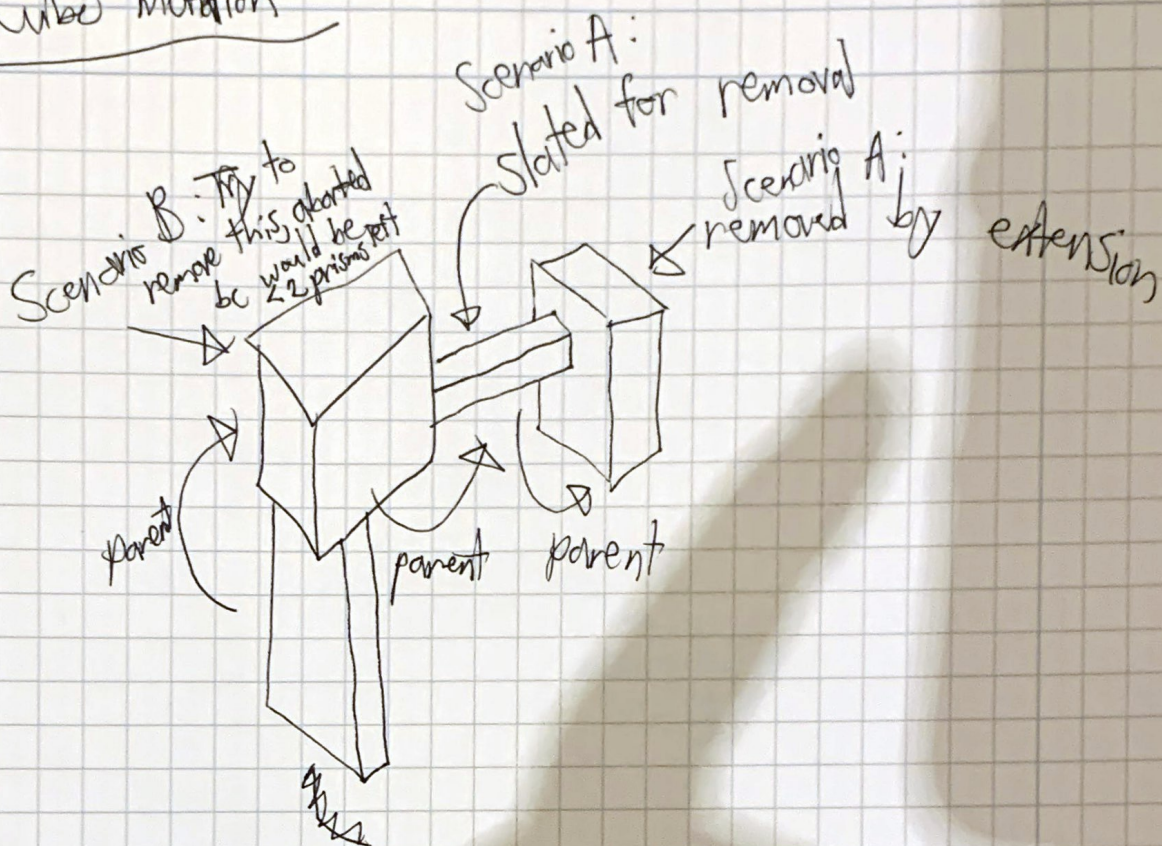 Cube Mutation
Scenario A:
slated for removal
Scenario A:
removed by extension
Scenario B: Try to
remove this, aborted
bc would be left
<2 prisms
parent
parent
parent